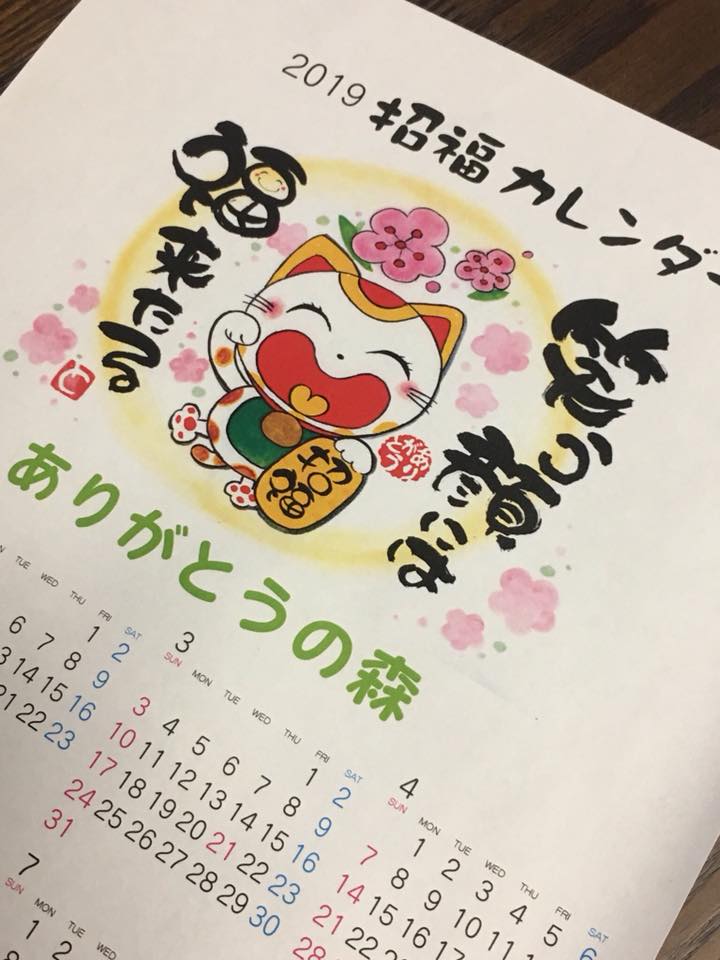 2019 招福 カレンダー
笑う顔には
福来たる。
招福
ありがとう
ありがとうの森
TUE WED THU FRI SAT
1 2
6 7 8 9
14 15 16
21 22 23
3
SUN MON TUE WED THU FRI SAT
1 2
3 4 5 6 7 8 9
10 11 12 13 14 15 16
17 18 19 20 21 22 23
24 25 26 27 28 29 30
31
4
SUN MON TUE WED THU FRI SAT
1 2 3 4 5 6
7 8 9 10 11 12
14 15 16 17
21 22
28
7
SUN MON TUE
1 2